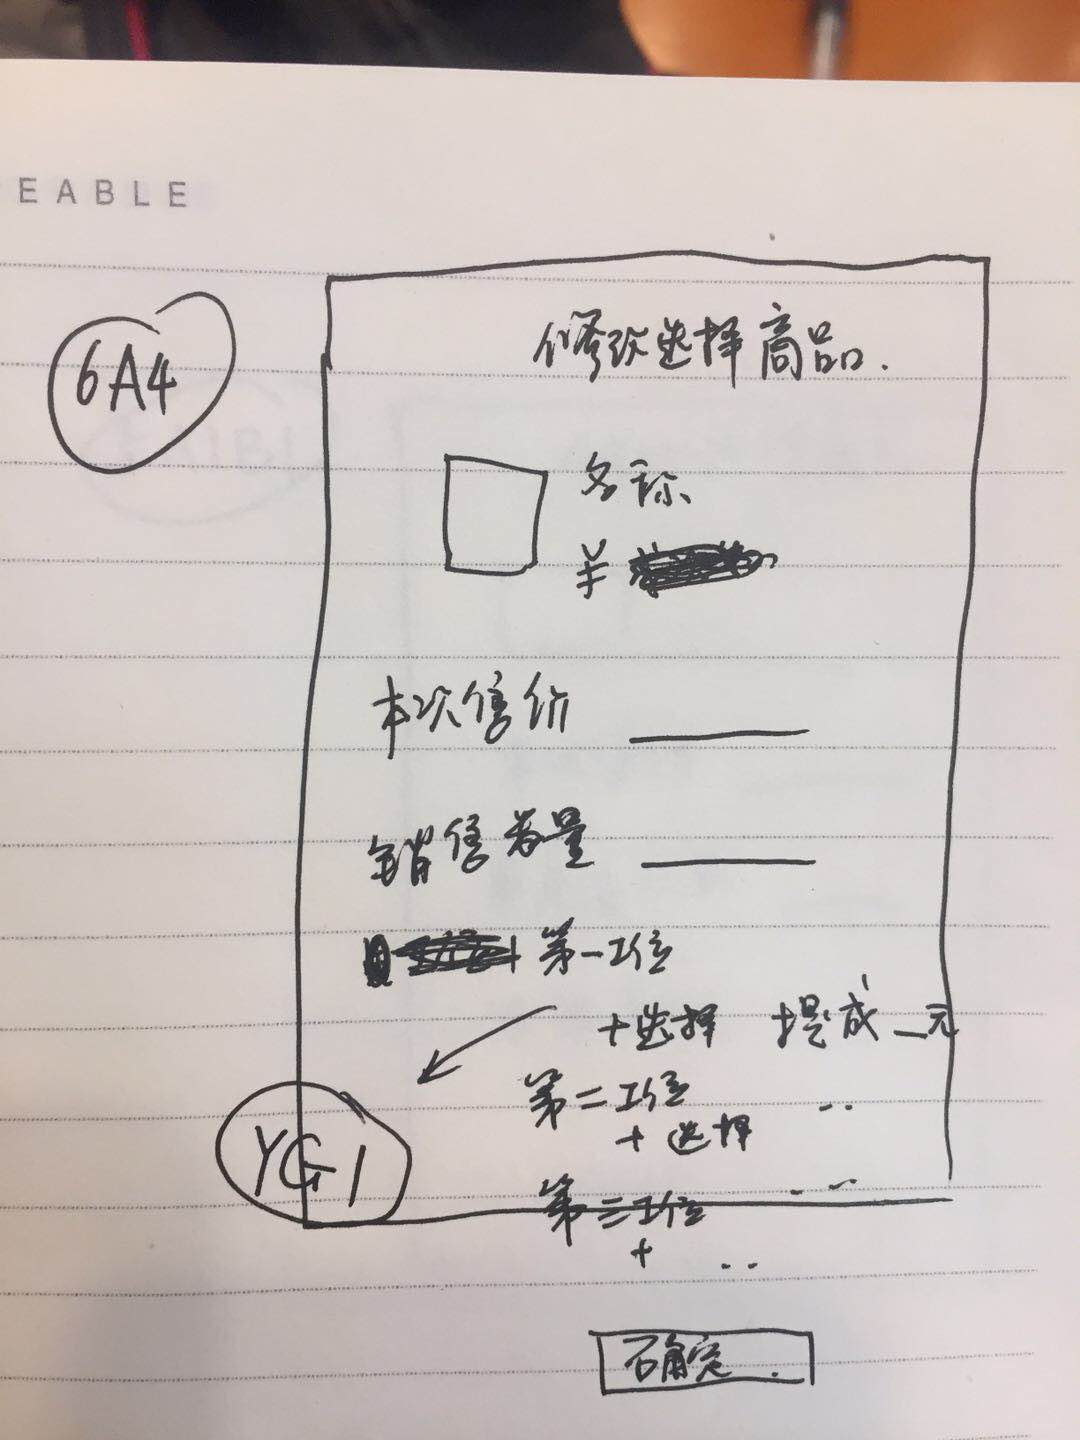 EABLE
6A4
修改选择商品.
名称
¥
本次售价
销售数量
第一工位
+选择 提成_元
第二工位 ..
+选择
YG1
第三工位 ...
+ ..
确定.